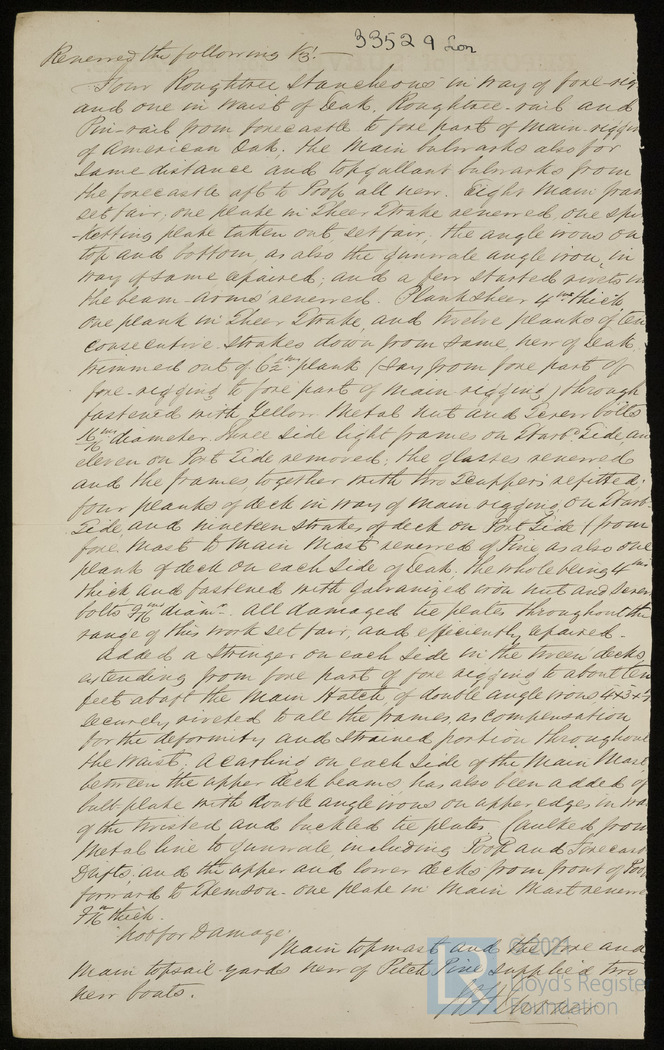 33529 Lon
Renewed the following viz!—
Four Roughtree Stancheons in way of fore-rig
and one in waist of Oak. Roughtree-rail and
Pin-rail from forecastle to fore part of main-riggin
of American Oak. the Main bulwarks also for
same distance, and topgallant bulwarks from
the forecastle aft to Poop all new. Eight main fram
set fair; one plate in Sheer Strake renewed, one spir
-ketting plate taken out, set fair; the angle irons on
top and bottom, as also the gunwale angle iron, in
way of same repaired; and a few started rivets in
the beam-arms renewed. Planksheer 4 ins thick
one plank in Sheer Strake, and twelve planks of ten
consecutive strakes down from same new of Teak,
trimmed out of 6½ ins plank (say from fore part of
fore-rigging to fore part of main rigging) through
fastened with Yellow Metal nut and Screw bolts
ins diameter. Three side light frames on Starbd Side, an
eleven on Port Side removed; the glasses renewed
and the frames, together with two Scuppers refitted;
four planks of deck in way of main rigging on Starb
Side, and nineteen strakes of deck on Port Side (from
fore mast to Main Mast renewed of Pine, as also one
plank of deck on each side of Teak. the whole being 4 ins
thick and fastened with galvanized iron nut and Screw
bolts 9/16 ins diamr. All damaged tie plates throughout the
range of this work set fair, and efficiently repaired.
Added a Stringer on each side in the tween decks
extending from fore part of fore rigging to about ten
feet abaft the Main Hatch of double angle irons 4x3x
securely riveted to all the frames, as compensation
for the deformity and strained portion throughout
the waist; a carling on each side of the Main Mast,
between the upper deck beams has also been added of
bulb-plate with double angle irons on upper edges in wa
of the twisted and buckled tie plates. Caulked from
Metal line to gunwale, including Poop and Forecast
Drifts, and the upper and lower decks from front of Poop
forward to Stemson. one plate in Main Mast renewe
thick.
Not for Damage.
Main topmast and the Fore and
Main topsail-yards new of Pitch Pine. Supplied two
new boats.
© 2021
Lloyd's Register
Foundation
LR